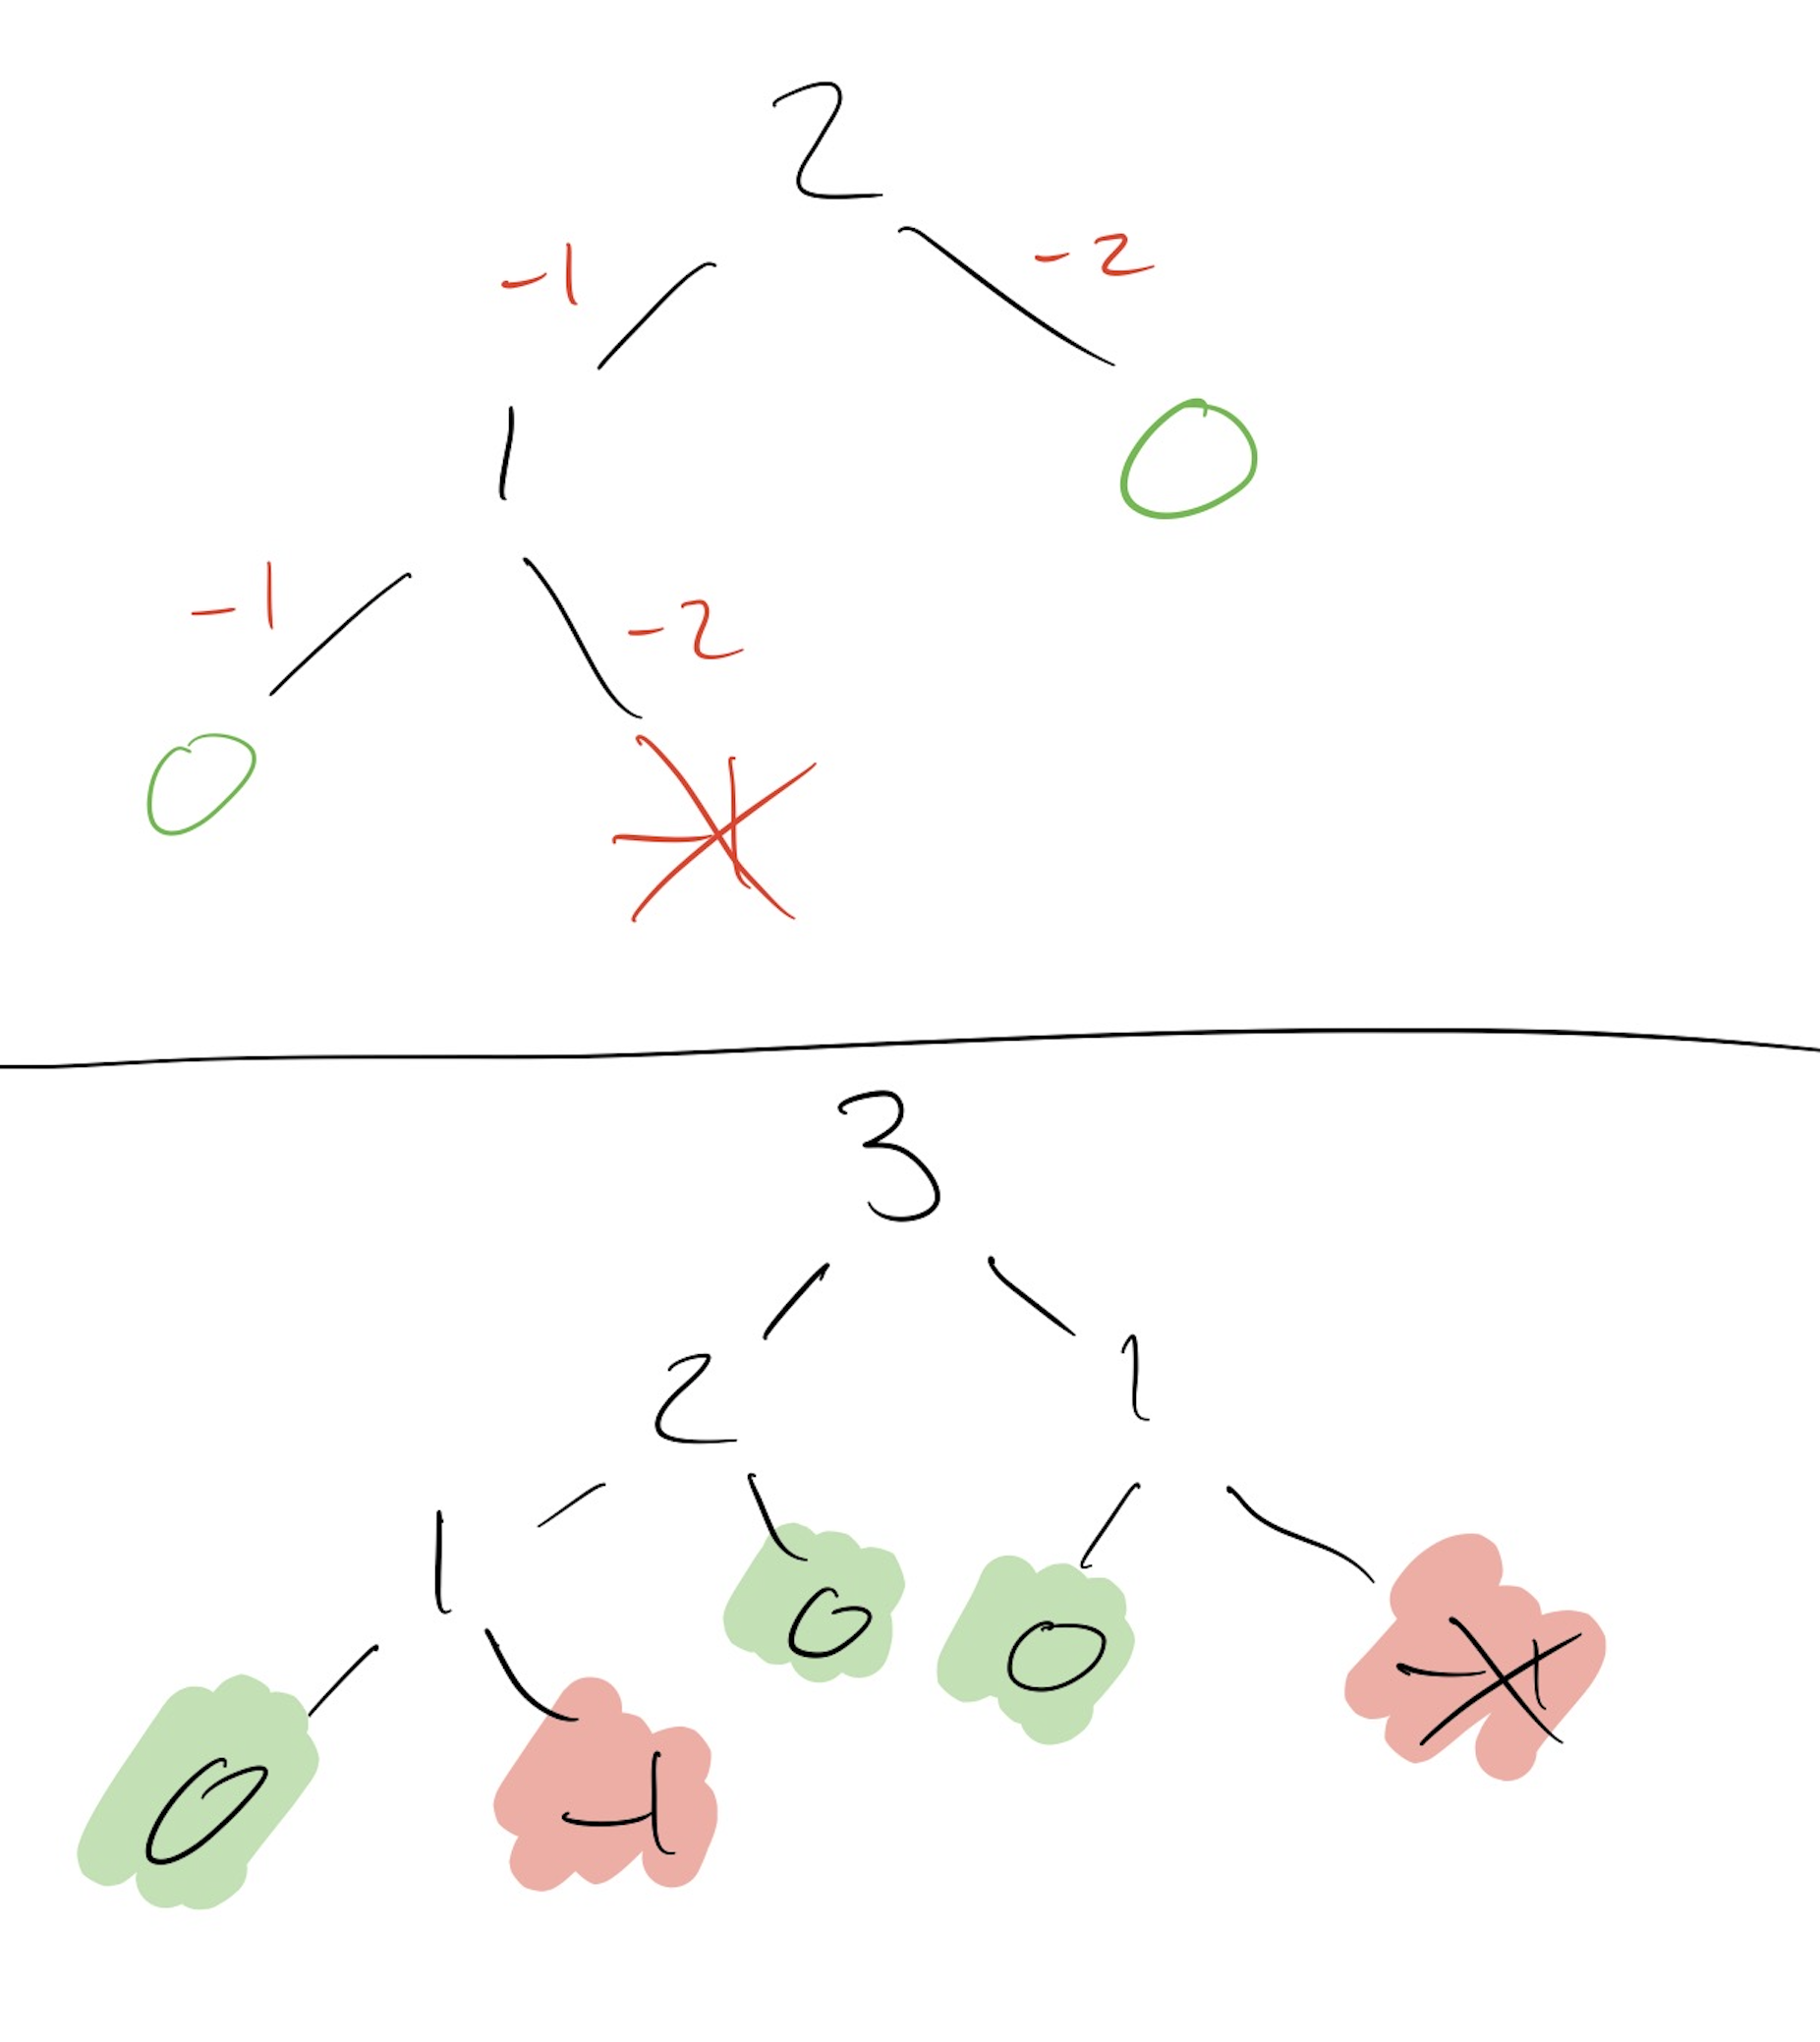 2
-1 -2
1 0
-1 -2
0 -1
3
2 1
1 0 0 -1
0 -1